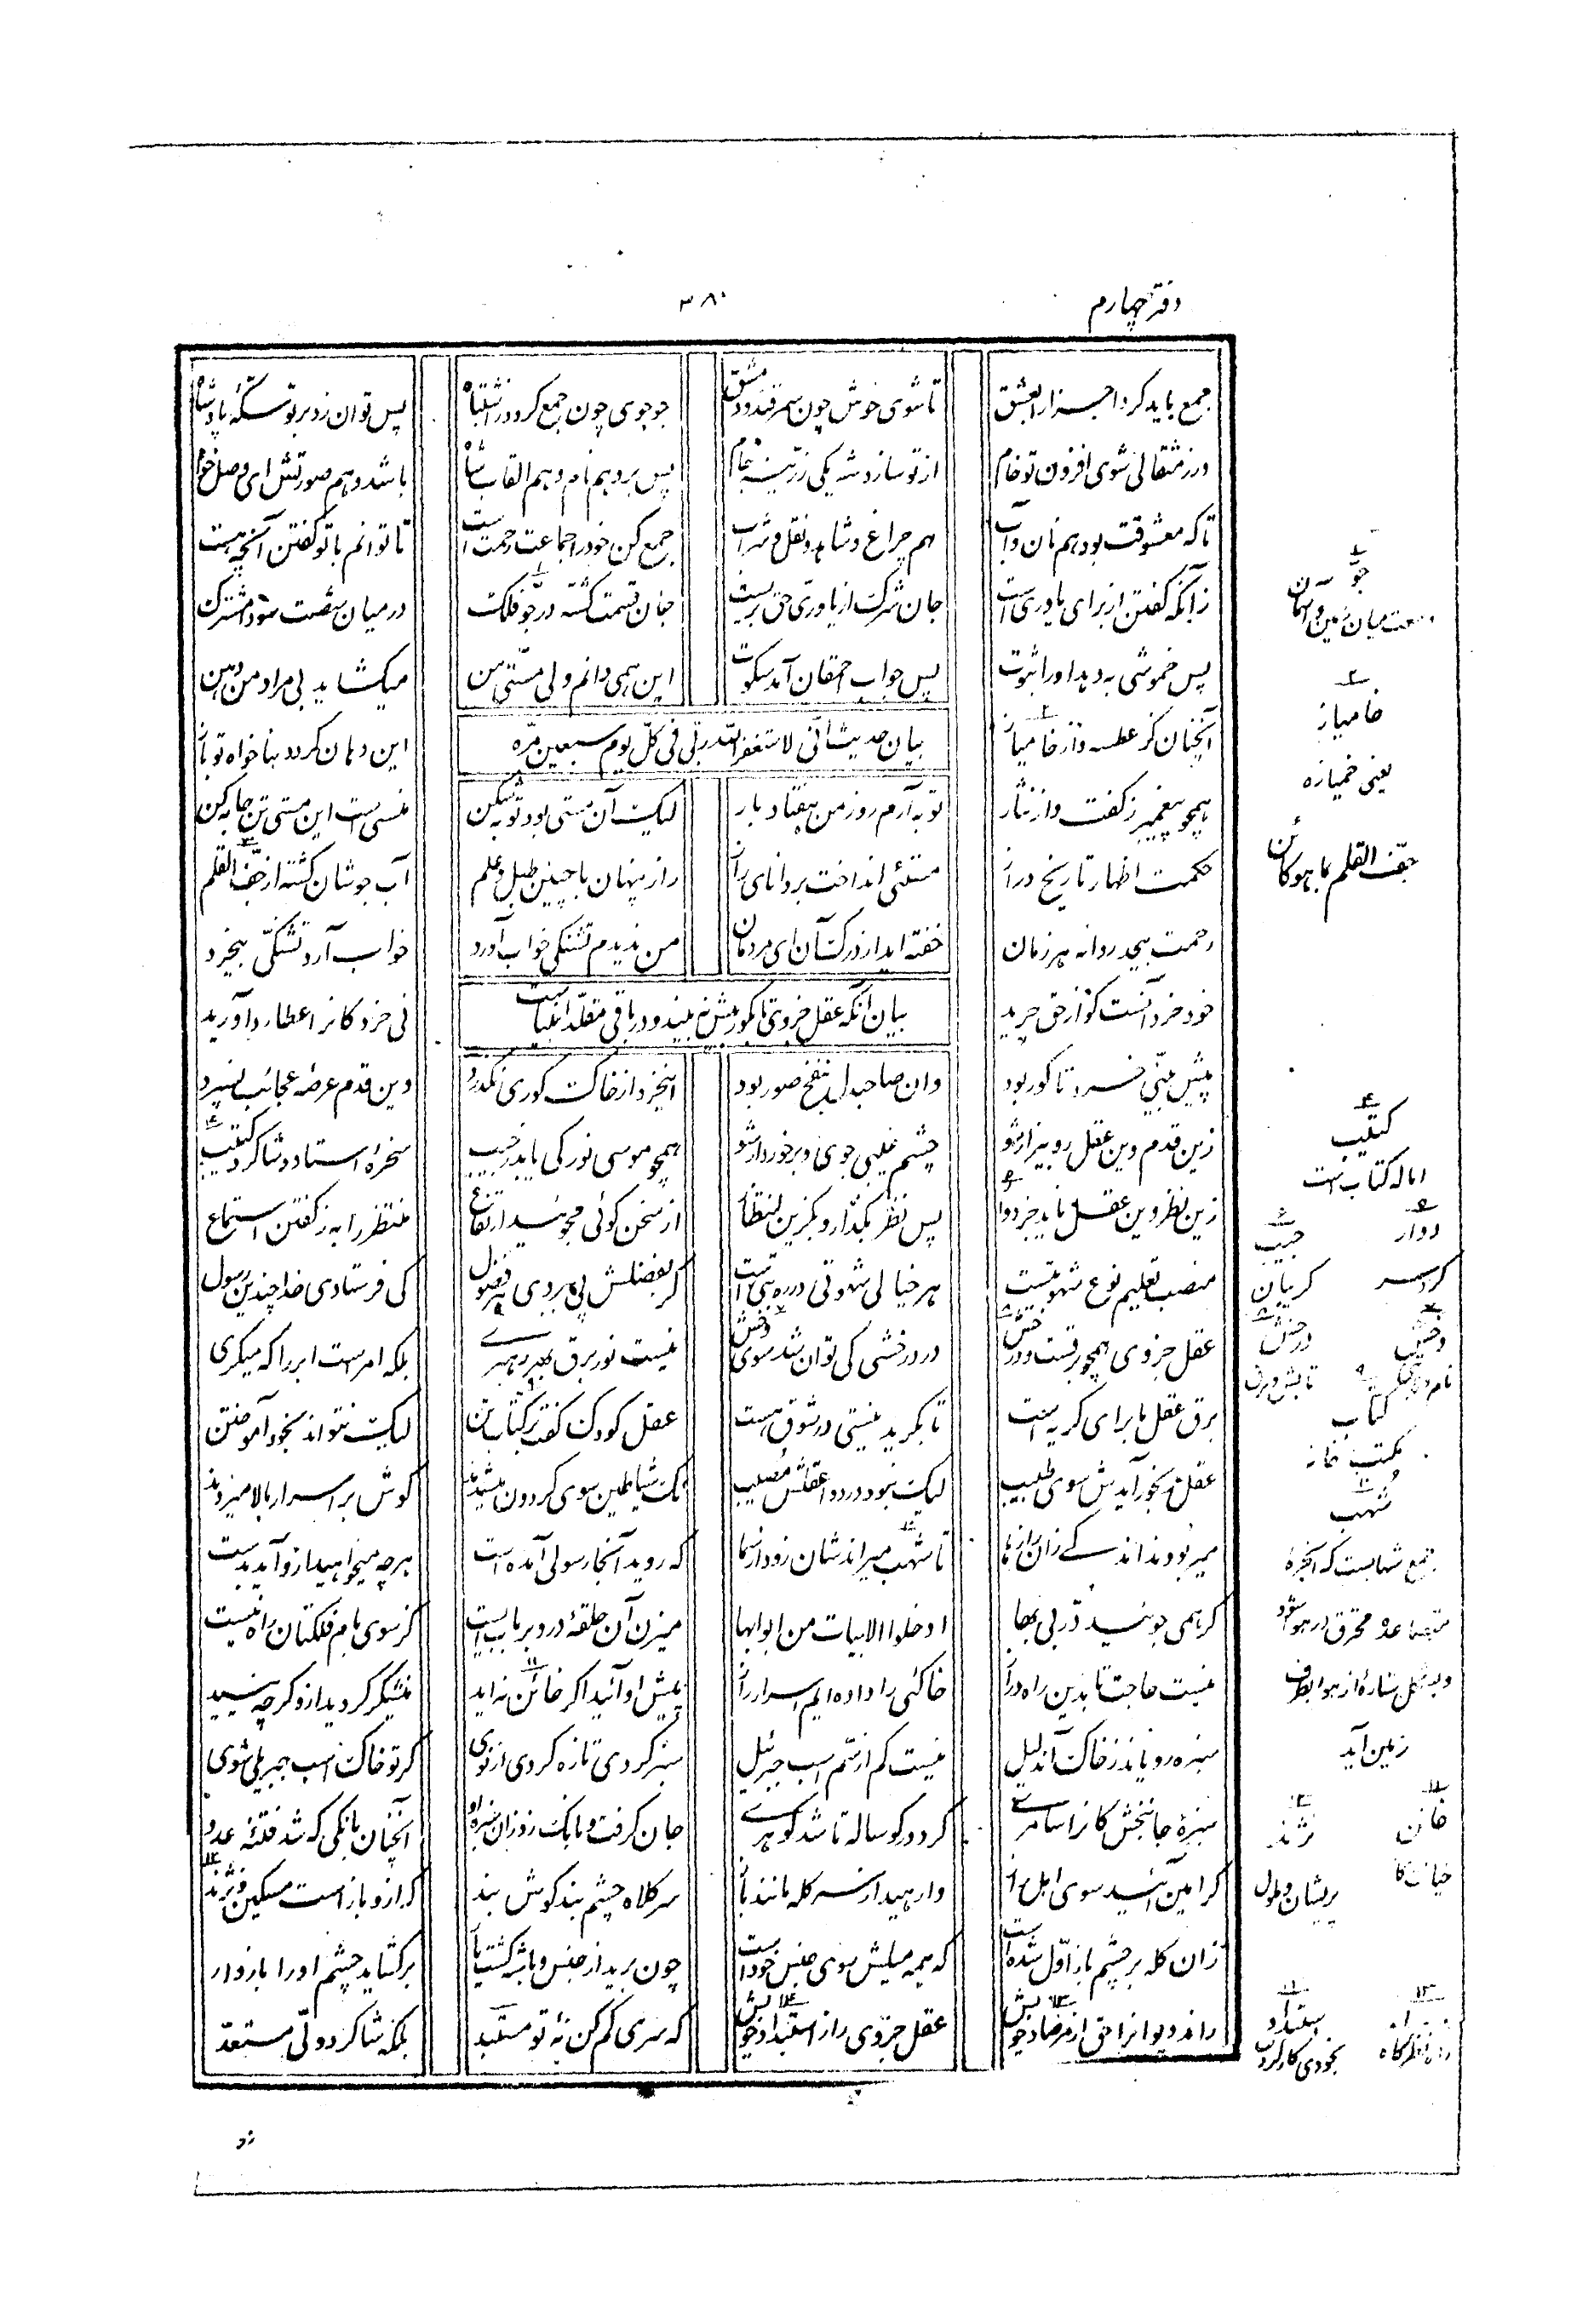 دفتر چهارم
۳۸۰
جمع باید کرد اجزا را بعشق
تا شوی خوش چون سمرقند و دمشق
جو جوی چون جمع کردی ز اشتباه
پس توان زد بر تو سکّهٔ پادشاه
ور ز مثقالی شوی افزون تو خام
از تو سازد شه یکی زرّینه جام
پس برو هم نام و هم القاب شاه
باشد و هم صورتش ای وصل خواه
تا که معشوقت بود هم نان و آب
هم چراغ و شاهد و نقل و شراب
جمع کن خود را جماعت رحمت است
تا توانم با تو گفتن آنچه هست
زانکه گفتن از برای باوری است
جان شرک از باوری حق بریست
جان قسمت گشته در جوّ فلک
در میان شصت سودا مشترک
پس خموشی به دهد او را ثبوت
پس جواب احمقان آمد سکوت
این همی دانم ولی مستی من
میگشاید بی مراد من دهن
آنچنان کز عطسه و از خامیاز
این دهان گردد بناخواه تو باز
بیان حدیث انّی لاستغفر الله ربّی فی کلّ یوم سبعین مرّه
همچو پیغمبر ز گفت و از نثار
توبه آرم روز من هفتاد بار
لیک آن مستی بود توبه شکن
منسی است این مستی تن جامه کن
حکمت اظهار تاریخ دراز
مستئی انداخت بر دانای راز
راز پنهان با چنین طبل و علم
آب جوشان گشته از جفّ القلم
رحمت بیحد روانه هر زمان
خفته اید از درک آن ای مردمان
من ندیدم تشنگی خواب آورد
خواب آرد تشنگی بیخرد
خود خرد آنست کو از حق چرید
نی خرد کانرا عطارد آورید
بیان آنکه عقل جزوی تا بگور بیش نه بیند و در باقی مقلّد انبیاست
پیش بینی خرد تا گور بود
وان صاحبدل بنفخ صور بود
این خرد از خاک گوری نگذرد
وین قدم عرصهٔ عجائب نسپرد
زین قدم وین عقل رو بیزار شو
چشم غیبی جوی و برخوردار شو
همچو موسی نور کی یابد ز جیب
سخرهٔ استاد و شاگرد کتیب
زین نظر وین عقل ناید جز دوار
پس نظر بگذار و بگزین انتظار
از سخن گوئی مجوئید ارتفاع
منتظر را به ز گفتن استماع
منصب تعلیم نوع شهوتست
هر خیالی شهوتی در ره بت است
گر بفضلش پی ببردی هر فضول
کی فرستادی خدا چندین رسول
عقل جزوی همچو برقست و درخش
در درخشی کی توان شد سوی وخش
نیست نور برق بهر رهبری
بلکه امرست ابر را که میگری
برق عقل ما برای گریه است
تا بگرید نیستی در شوق هست
عقل کودک گفت بر کتّاب تن
لیک نتواند بخود آموختن
عقل رنجور آیدش سوی طبیب
لیک نبود در دوا عقلش مصیب
نک شیاطین سوی گردون میشدند
گوش بر اسرار بالا میزدند
میربودند اندکی زان رازها
تا شهب میراندشان زود از سما
که روید آنجا رسولی آمده است
هرچه میخواهید ازو آید بدست
گر همی جوئید درّ بی بها
ادخلوا الابیات من ابوابها
میزن آن حلقهٔ در و بر باب ایست
کز سوی بام فلکتان راه نیست
نیست حاجتتان بدین راه دراز
خاکئی را داده ایم اسرار راز
پیش او آئید اگر خائن نه اید
نیشکر گردید ازو گرچه نئید
سبزه رویاند ز خاکت آن دلیل
نیست کم از سمّ اسب جبرئیل
سبز گردی تازه گردی از نوی
گر تو خاک اسب جبریلی شوی
سبزهٔ جانبخش کانرا سامری
کرد در گوساله تا شد گوهری
جان گرفت و بانگ زد زان سبزه او
آنچنان بانگی که شد فتنهٔ عدو
گر امین آئید سوی اهل راز
وارهید از سر کله مانند باز
سر کلاه چشم بند گوش بند
که ازو باز است مسکین و نژند
زان کله بر چشم باز اوّل شده است
که همه میلش سوی جنس خود است
چون برید از جنس و باشه گشت یار
برگشاید چشم او را بازدار
راند دیوانرا حق از مرصاد خویش
عقل جزوی را ز استبداد خویش
که سری کم کن نهٔ تو مستبد
بلکه شاگرد دلی مستعدّ
زد
جوّ
وسعت میان زمین و آسمان
خامیاز
یعنی خمیازه
جفّ القلم بما هو کائن
کتیب
اماله کتاب است
دوار
گردسر
جیب
گریبان
وخش
درخش
تابش و برق
کتّاب
مکتب خانه
شهب
جمع شهابست که ابخرهٔ
متصاعده محترق در هوا شود
و بشکل ستارهٔ از هوا بطرف
زمین آید
خائن
خیانت کار
نژند
پریشان و ملول
استبداد
بخودی کار کردن